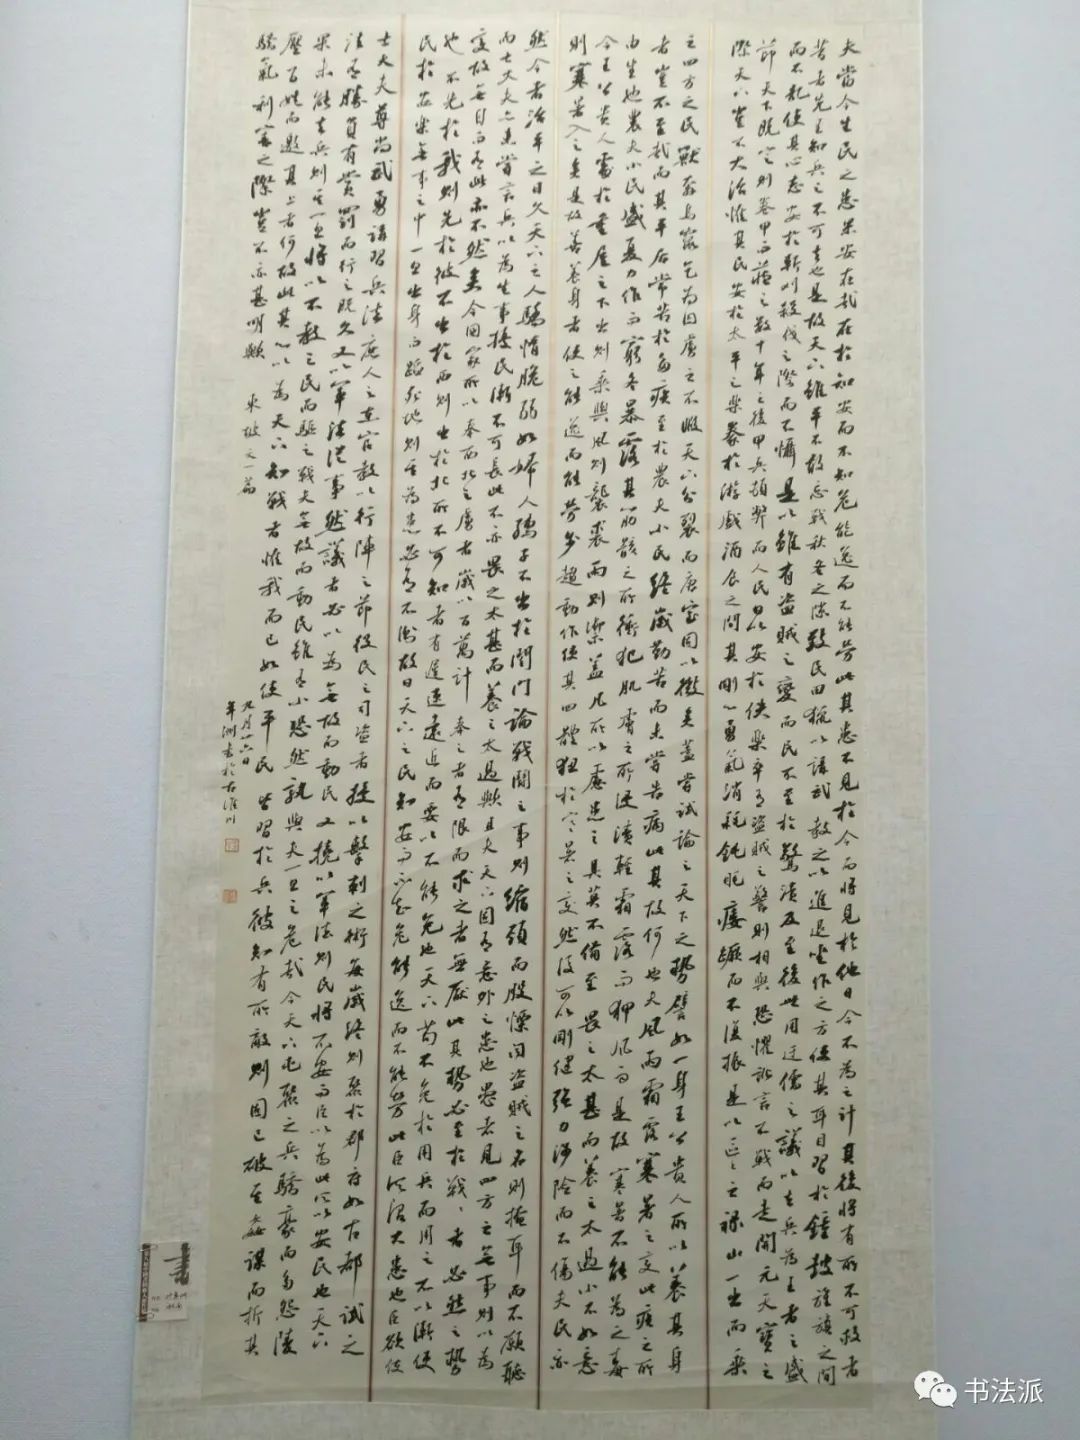 夫當今生民之患果安在哉在於知安而不知危能逸而不能勞此其患不見於今而將見於他日今不為之計其後將有所不可救者
昔者先王知兵之不可去也是故天下雖平不敢忘戰秋冬之隙致民田獵以講武教之以進退坐作之方使其耳目習於鐘鼓旌旗之間
而不亂使其心志安於斬刈殺伐之際而不懾是以雖有盜賊之變而民不至於驚潰及至後世用迂儒之議以去兵為王者之盛
節天下既定則卷甲而藏之數十年之後甲兵頓弊而人民日以安於佚樂卒有盜賊之警則相與恐懼訛言不戰而走開元天寶之
際天下豈不大治惟其民安於太平之樂豢於游戲酒食之間其剛心勇氣消耗鈍眊痿蹶而不復振是以區區之祿山一出而乘
之四方之民獸奔鳥竄乞為囚虜之不暇天下分裂而唐室因以微矣蓋嘗試論之天下之勢譬如一身王公貴人所以養其身
者豈不至哉而其平居常苦於多疾至於農夫小民終歲勤苦而未嘗告病此其故何也夫風雨霜露寒暑之變此疾之所
由生也農夫小民盛夏力作而窮冬暴露其筋骸之所衝犯肌膚之所浸漬輕霜露而狎風雨是故寒暑不能為之毒
今王公貴人處於重屋之下出則乘輿風則襲裘雨則御蓋凡所以慮患之具莫不備至畏之太甚而養之太過小不如意
則寒暑入之矣是故善養身者使之能逸而能勞步趨動作使其四體狃於寒暑之變然後可以剛健強力涉險而不傷夫民亦
然今者治平之日久天下之人驕惰脆弱如婦人孺子不出於閨門論戰鬭之事則縮頸而股慄聞盜賊之名則掩耳而不願聽
而士大夫亦未嘗言兵以為生事擾民漸不可長此不亦畏之太甚而養之太過歟且夫天下固有意外之患也愚者見四方之無事則以為
變故無自而有此亦不然矣今國家所以奉西北之虜者歲以百萬計奉之者有限而求之者無厭此其勢必至於戰戰者必然之勢
也不先於我則先於彼不出於西則出於北所不可知者有遲速遠近而要以不能免也天下苟不免於用兵而用之不以漸使
民於安樂無事之中一旦出身而蹈死地則其為患必有不測故曰天下之民知安而不知危能逸而不能勞此臣所謂大患也臣欲使
士大夫尊尚武勇講習兵法庶人之在官教以行陣之節役民之司盜者授以擊刺之術每歲終則聚於郡府如古都試之
法有勝負有賞罰而行之既久又以軍法從事然議者必以為無故而動民又撓以軍法則民將不安而臣以為此所以安民也天下
果未能去兵則其一旦將以不教之民而驅之戰夫無故而動民雖有小恐然孰與夫一旦之危哉今天下屯聚之兵驕豪而多怨陵
壓百姓而邀其上者何故此其心以為天下知戰者惟我而已如使平民皆習於兵彼知有所敵則固已破其姦謀而折其
驕氣利害之際豈不亦甚明歟 東坡文一篇
九月廿六日
年洲書於古淮川
書法派